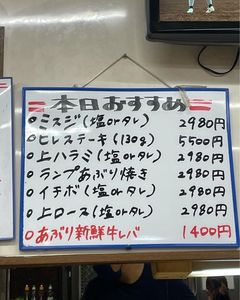 本日おすすめ
○ミスジ(塩orタレ) 2980円
○ヒレステーキ(130g) 5500円
○上ハラミ(塩orタレ) 2980円
○ランプあぶり焼き 2980円
○イチボ(塩orタレ) 2980円
○上ロース(塩orタレ) 2980円
○あぶり新鮮牛レバ 1400円